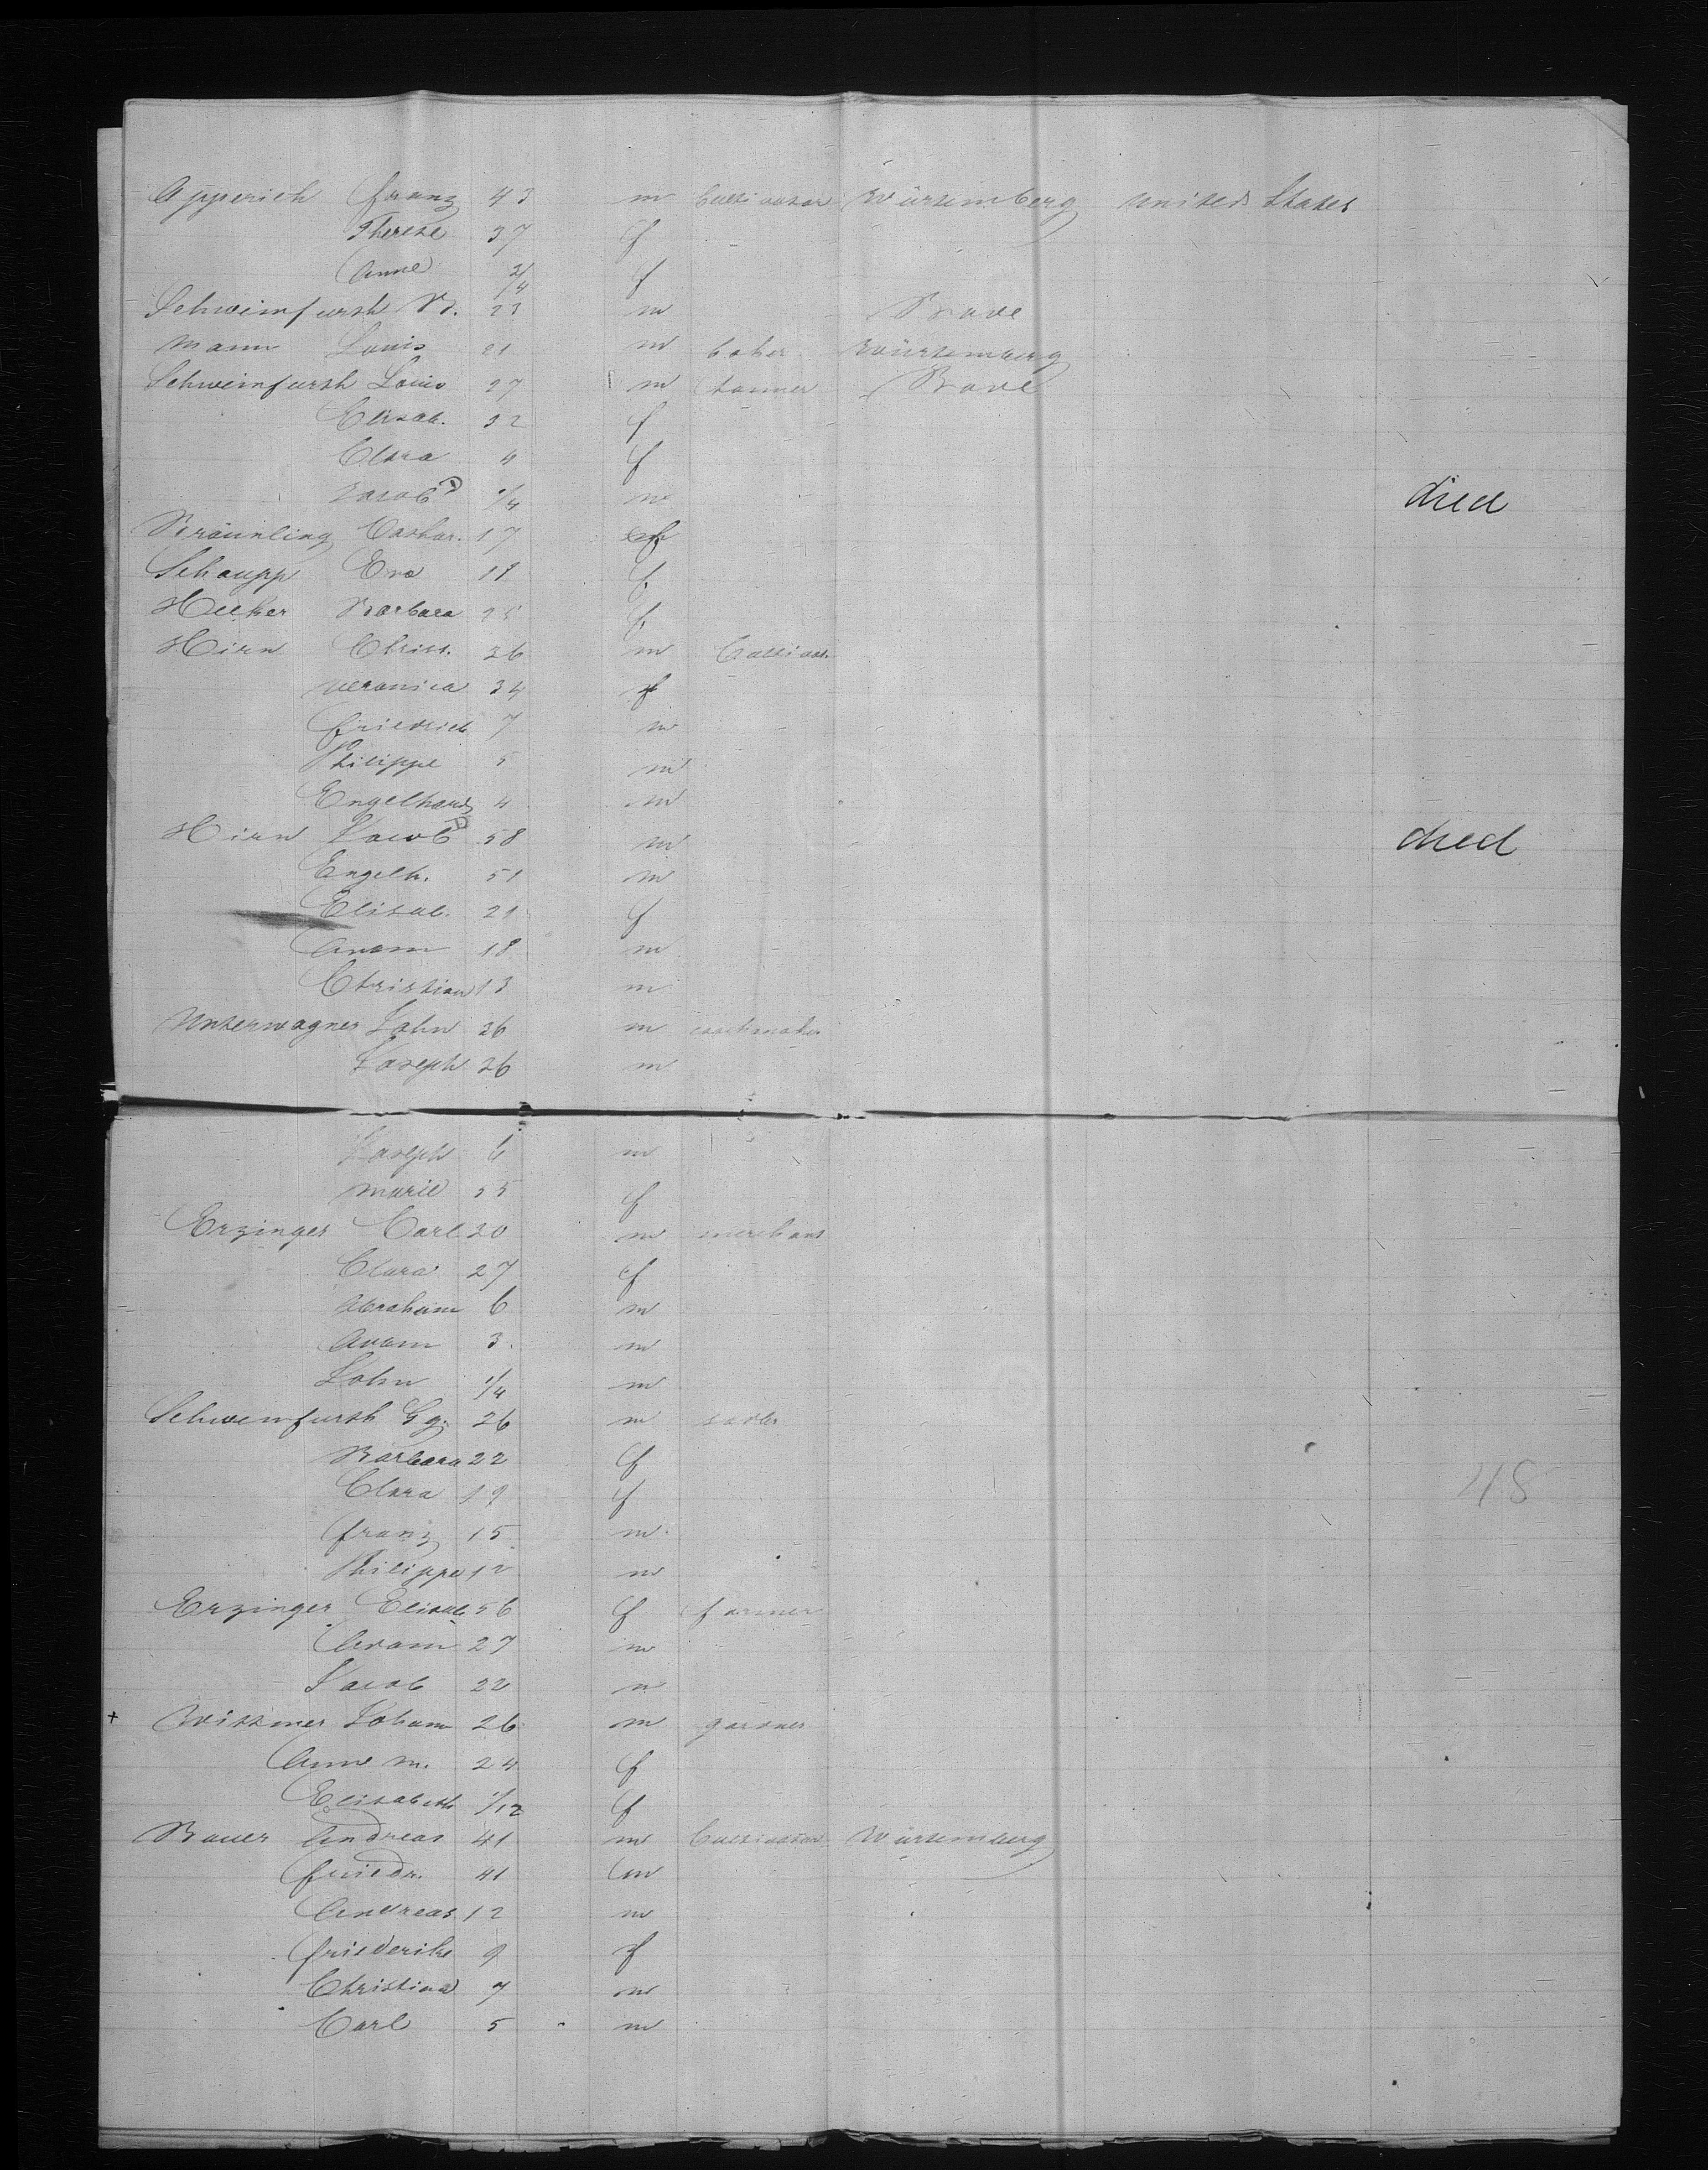 Apperich Franz 43 m Cultivator Würtemberg United States
Therese 37 f
Anne 3/4 f
Schweinfurth B. 23 m Bade
Mann Louis 21 m baker Würtemberg
Schweinfurth Louis 27 m tanner Bade
Elisab. 32 f
Clara 4 f
Jacob D 1/4 m died
Bräunling Cathar. 17 f
Schaupp Eva 18 f
Hecker Barbara 25 f
Hirn Christ. 36 m Cultivat.
Veronica 34 f
Friedrich 7 m
Philippe 5 m
Engelhard 4 m
Hirn Jacob D 58 m died
Engelh. 51 m
Elisab. 21 f
Adam 18 m
Christian 13 m
Unterwagner John 36 m coachmaker
Joseph 26 m
Joseph 6 m
Marie 55 f
Erzinger Carl 30 m merchant
Clara 27 f
Abraham 6 m
Adam 3 m
John 1/4 m
Schweinfurth Gg. 26 m sadler
Barbara 22 f
Clara 19 f
Franz 15 m
Philippe 12 m
Erzinger Elisab. 56 f farmer
Adam 27 m
Jacob 22 m
+ Johann 26 m gardner
Anne M. 24 f
Elisabeth 1/12 f
Bauer Andreas 41 m Cultivator Würtemberg
Friedr. 41 m
Andreas 12 m
Friederike 9 f
Christian 7 m
Carl 5 m